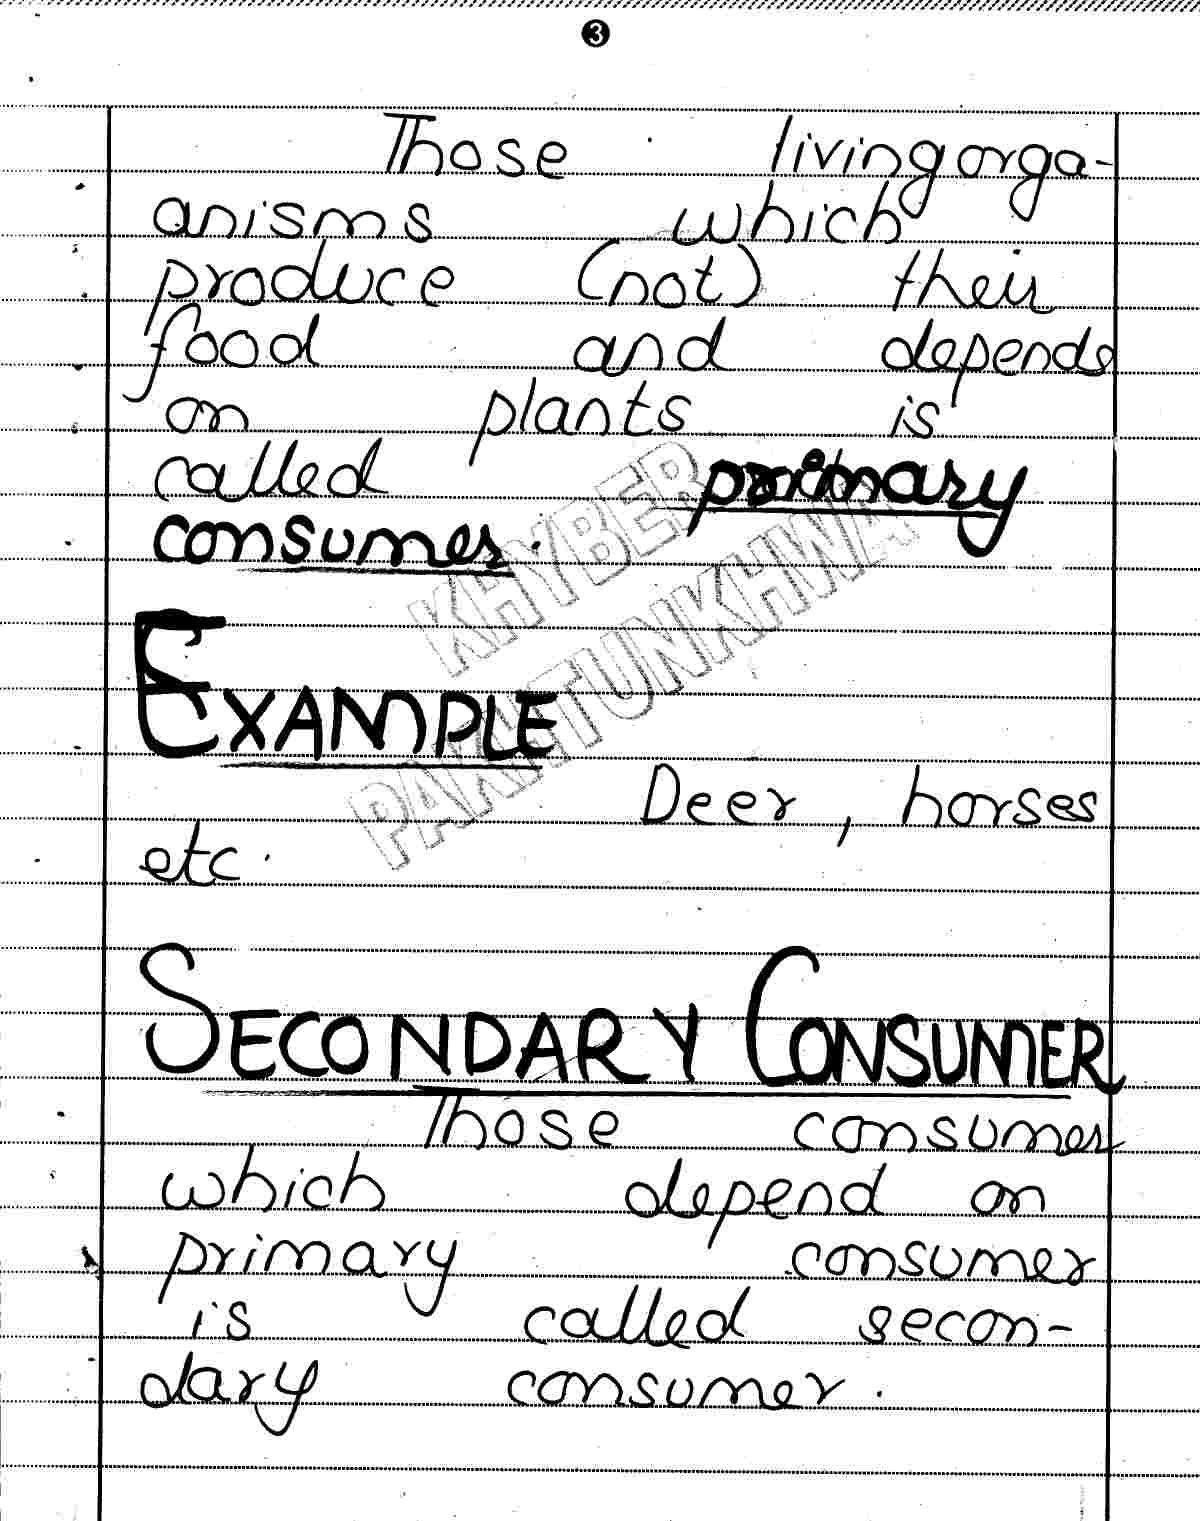 3
Those living orga-
anisms which
produce (not) their
food and depends
on plants is
called primary
consumer.
KHYBER
PAKHTUNKHWA
EXAMPLE
Deer, horses
etc.
SECONDARY CONSUMER
Those consumer
which depend on
primary consumer
is called secon-
dary consumer.